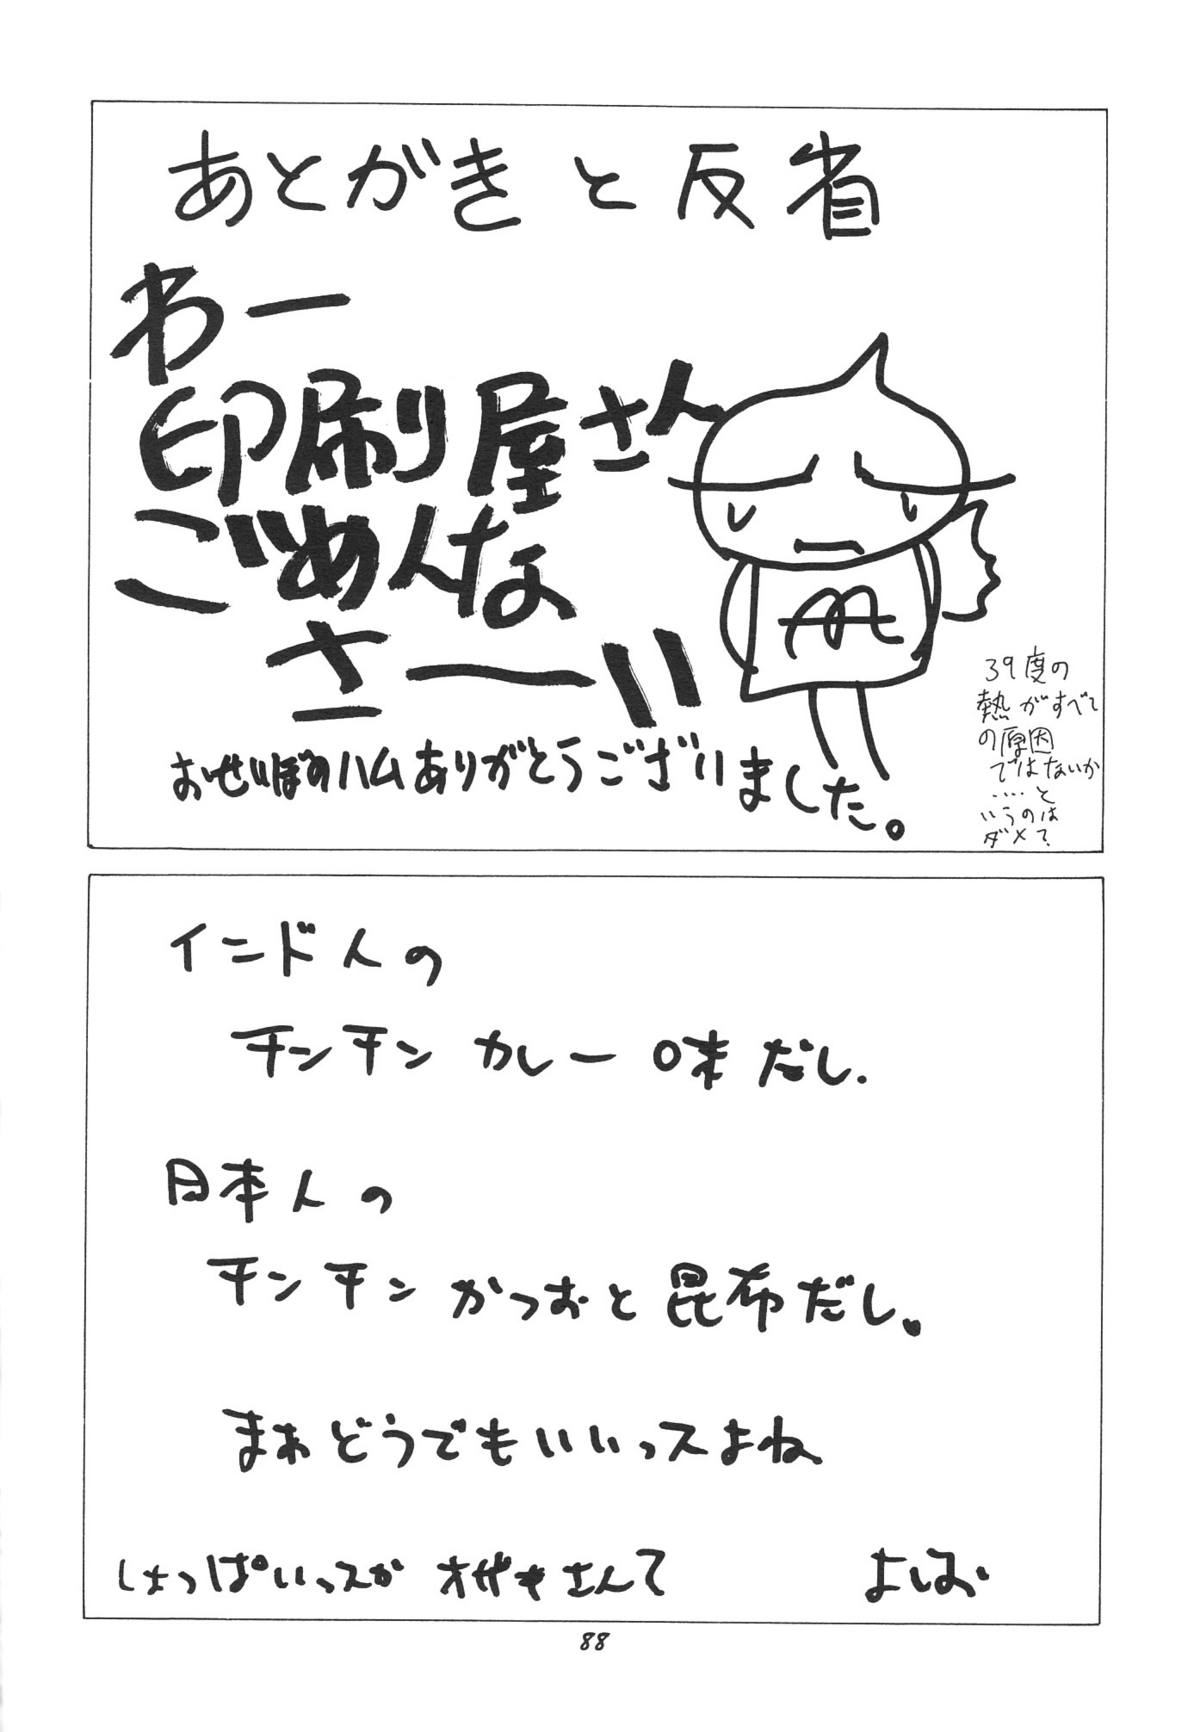 あとがきと反省
わー
印刷屋さん
ごめんな
さーい
おせいぼのハムありがとうございました。
39度の
熱がすべて
の原因
ではないか
‥‥と
いうのは
ダメで?
インド人の
チンチンカレー味だし.
日本人の
チンチンかつおと昆布だし。
まあどうでもいいっスよね
しょっぱいっスか オザキさんて
よしお
88